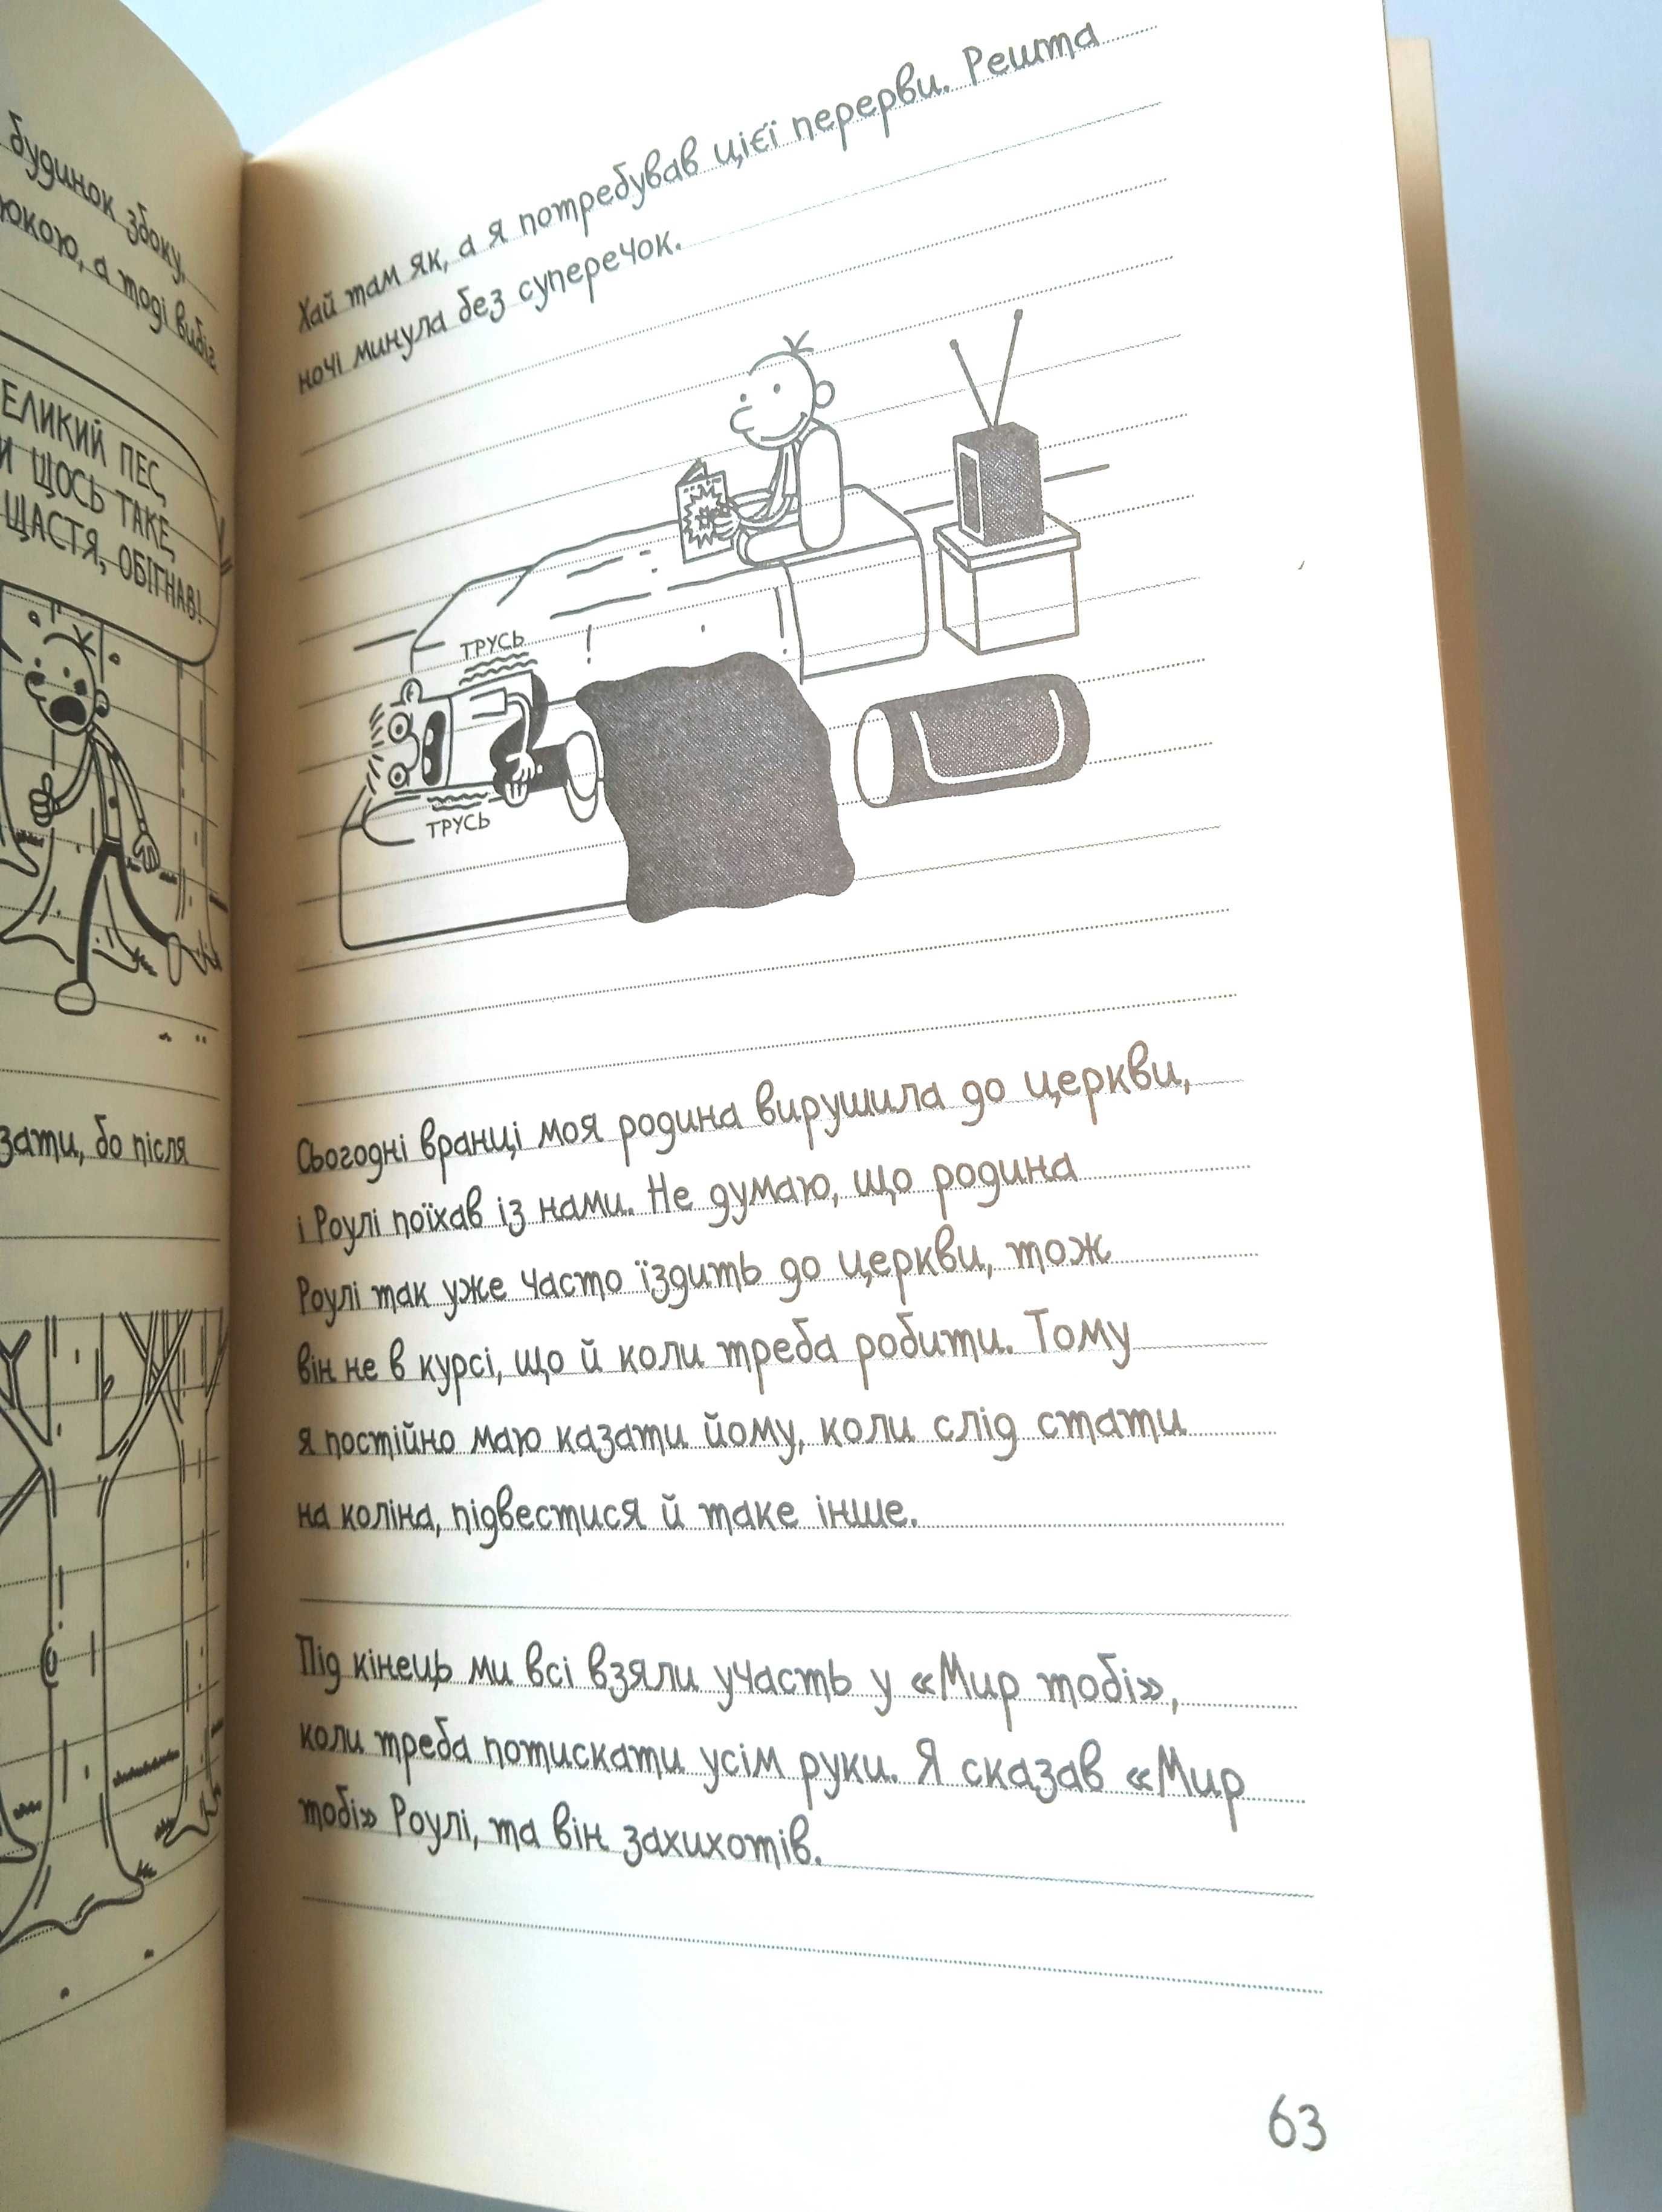 будинок збоку,
а тоді вибіг
ПЕС,
ЩОСЬ ТАКЕ,
ЩАСТЯ, ОБІГНАВ!
бо після
Хай там як, а я потребував цієї перерви. Решта
ночі минула без суперечок.
ТРУСЬ
ТРУСЬ
Сьогодні вранці моя родина вирушила до церкви,
і Роулі поїхав із нами. Не думаю, що родина
Роулі так уже часто їздить до церкви, тож
він не в курсі, що й коли треба робити. Тому
я постійно маю казати йому, коли слід стати
на коліна, підвестися й таке інше.
Під кінець ми всі взяли участь у «Мир тобі»,
коли треба потискати усім руки. Я сказав «Мир
тобі» Роулі, та він захихотів.
63